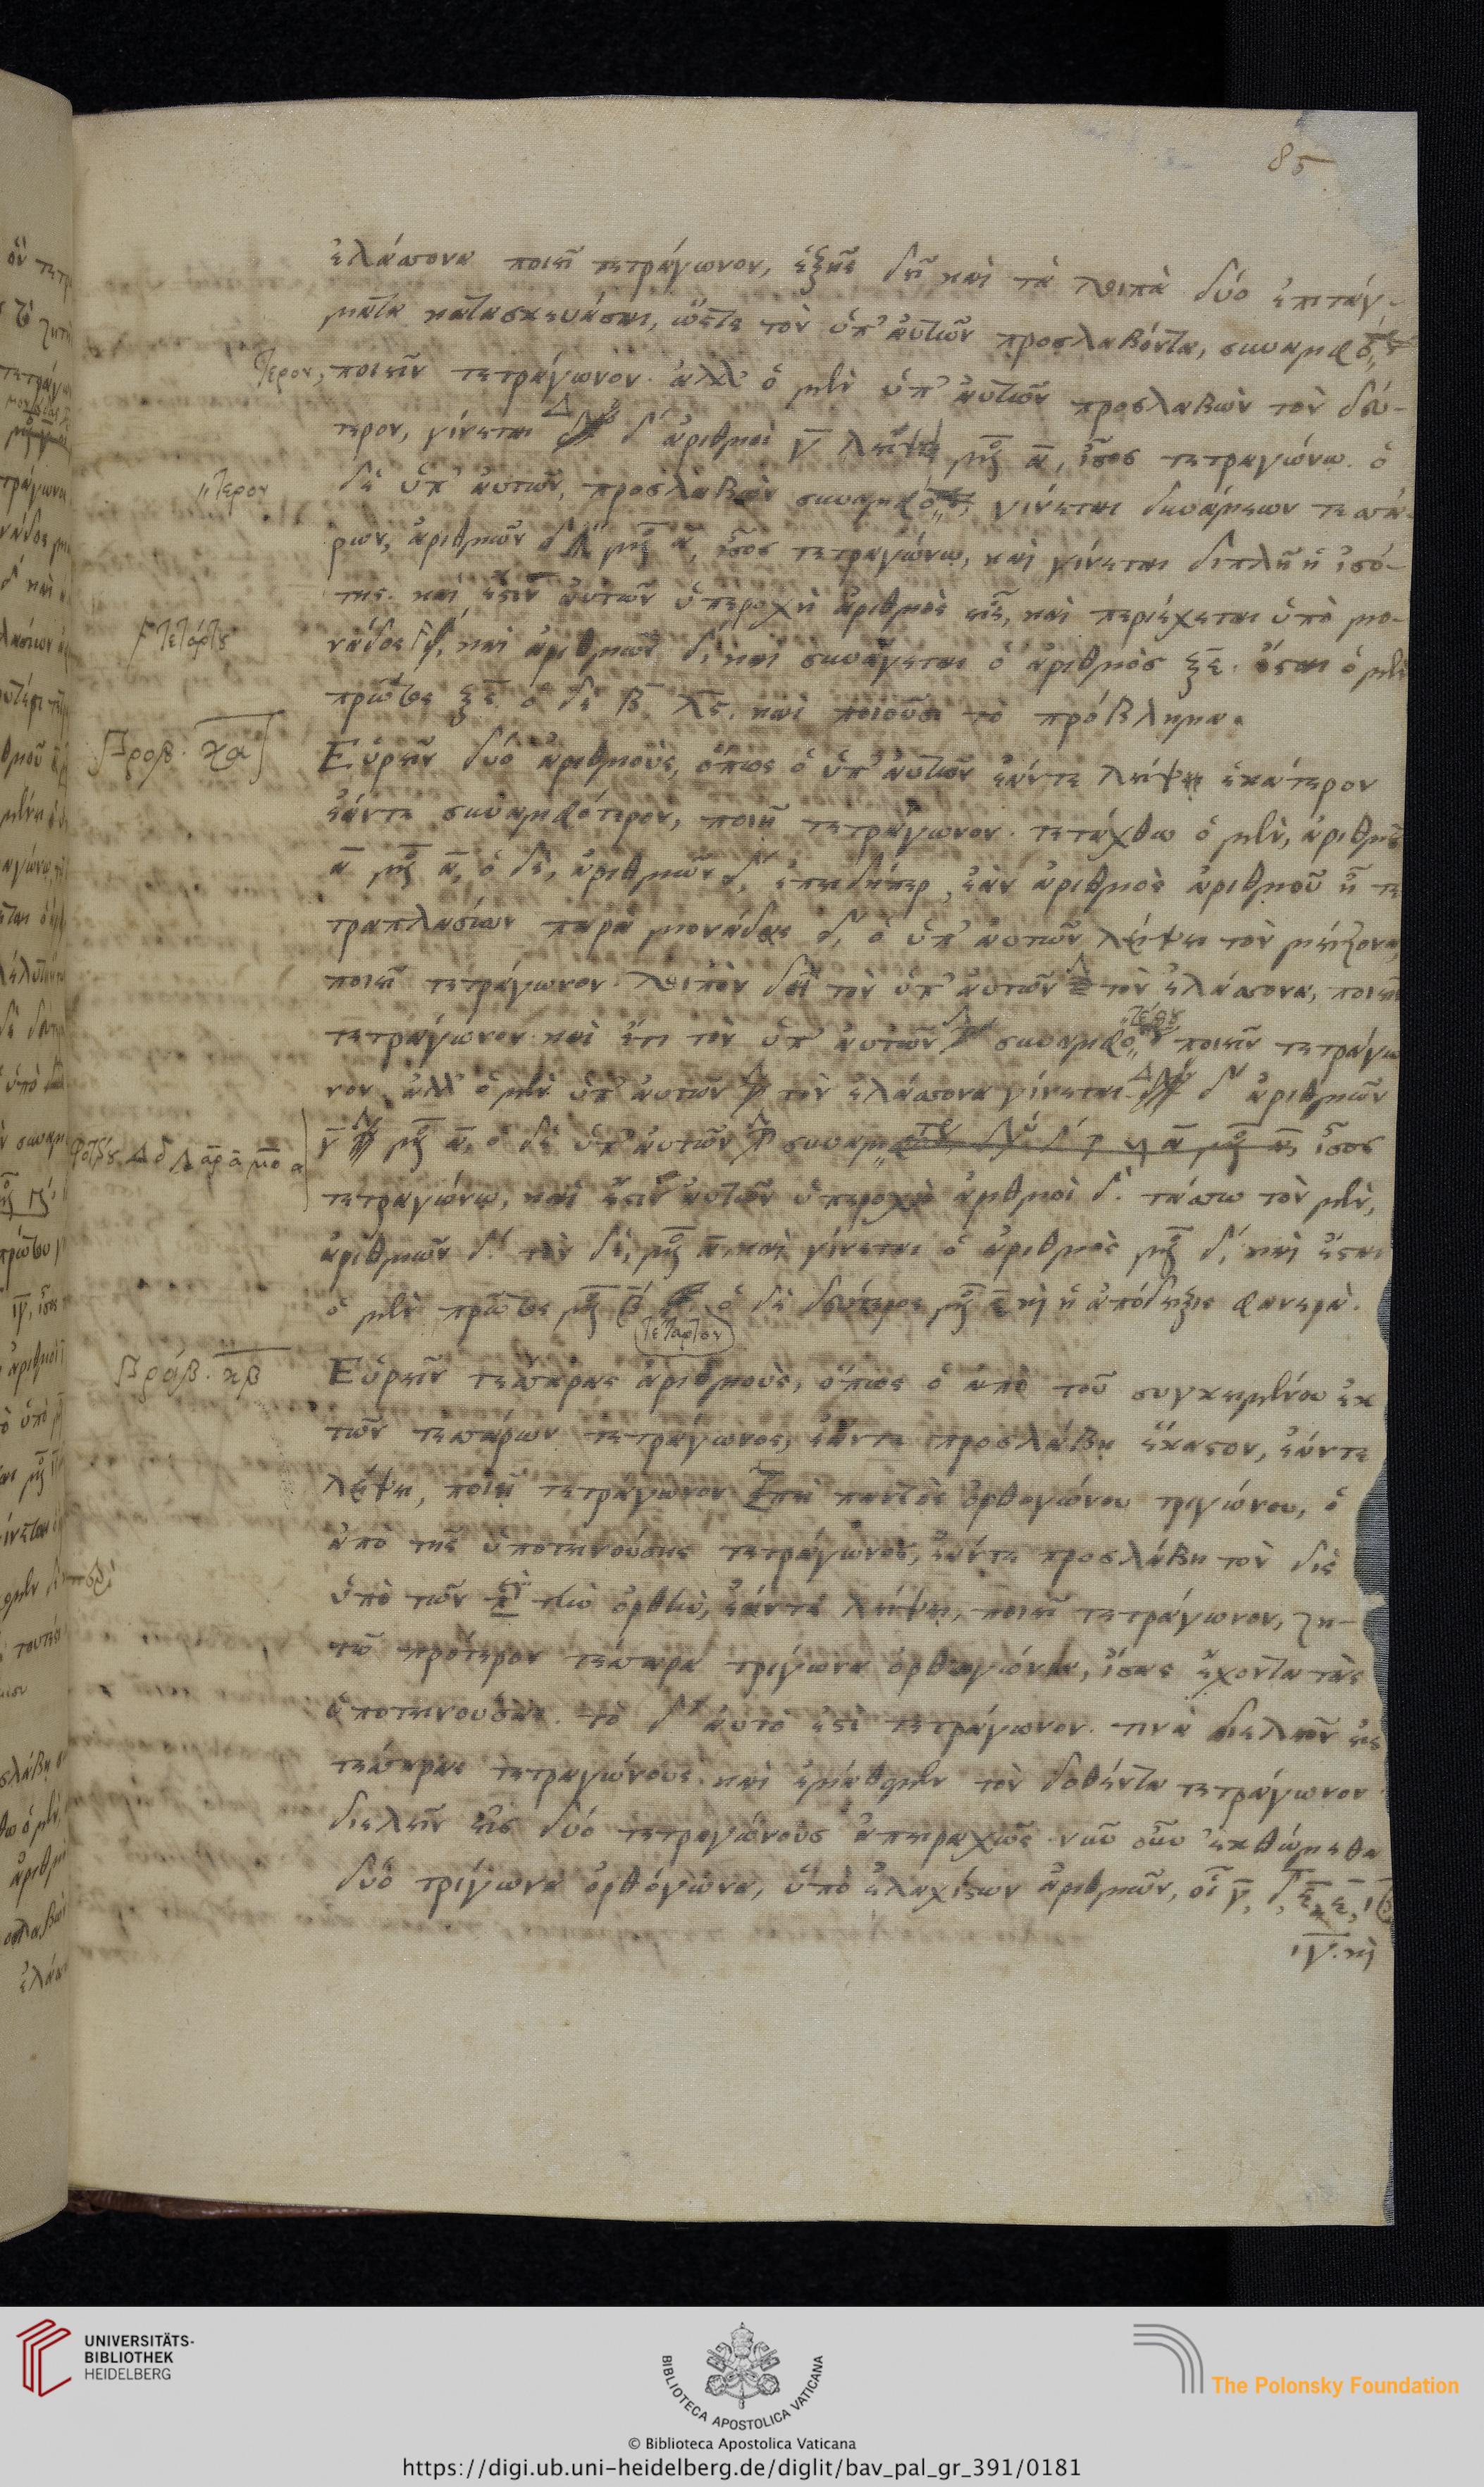 85
ἐλάσσονα ποιεῖ τετράγωνον, ἑξῆς δεῖ καὶ τὰ λοιπὰ δύο ἐπιτάγ-
ματα κατασκευάσαι, ὥστε τὸν ὑπ' αὐτῶν προσλαβόντα, συναμφό
τερον, ποιεῖν τετράγωνον. ἀλλ' ὁ μὲν ὑπ' αὐτῶν προσλαβὼν τὸν δεύ-
τερον, γίνεται Δ δ ἀριθμοὶ γ̅ λείψει μο̅ α̅, ἴσος τετραγώνω. ὁ
τερον
δὲ ὑπ' αὐτῶν, προσλαβὼν συναμφό γίνεται δυνάμεων τεσσά-
ρων, ἀριθμῶν μο̅ α̅, ἴσος τετραγώνω, καὶ γίνεται διπλῆ ἡ ἰσό-
της. καὶ ἔστιν αὐτῶν ὑπεροχὴ ἀριθμὸς εἷς, καὶ περιέχεται ὑπὸ μο-
τετάρτου
νάδος καὶ ἀριθμῶν δ, καὶ συνάγεται ὁ ἀριθμὸσ ξε. ἔσται ὁ μὲν
πρῶτος ξε. ὁ δὲ β λς. καὶ ποιοῦσι τὸ πρόβλημα.
Προβ. κα
Εὑρεῖν δύο ἀριθμοὺς, ὅπως ὁ ὑπ' αὐτῶν ἐάντε λείψη ἑκάτερον
ἐάντε συναμφότερον, ποιῆ τετράγωνον. τετάχθω ὁ μὲν, ἀριθμοῦ
α̅ μο̅ α̅, ὁ δὲ, ἀριθμῶν δ, ἐπειδήπερ, ἐὰν ἀριθμὸς ἀριθμοῦ ἦ τε
τραπλασίων παρὰ μονάδας δ, ὁ ὑπ' αὐτῶν λείψει τὸν μείζονα,
ποιεῖ τετράγωνον. λοιπὸν δεῖ τὸν ὑπ' αὐτῶν τὸν ἐλάσσονα, ποιεῖν
τετράγωνον. καὶ ἔτι τὸν ὑπ' αὐτῶν συναμφο ποιεῖν τετράγω
νον. ἀλλ' ὁ μὲν ὑπ' αὐτῶν τὸν ἐλάσσονα γίνεται δ ἀριθμῶν
γ̅ μο̅ α̅, ὁ δὲ ὑπ' αὐτῶν συναμ ἴσος
τετραγώνω, καὶ ἔστιν αὐτῶν ὑπεροχὴ ἀριθμοὶ δ. τάσσω τὸν μὲν,
ἀριθμῶν δ. τὸν δὲ, μο̅ α̅. καὶ γίνεται ὁ ἀριθμὸς μο̅ καὶ ἔσται
ὁ μὲν πρῶτος μο̅ β ὁ δὲ δεύτερος μο̅ ε̅ κὶ ἡ ἀπόδειξις φανερὰ.
τέταρτον
Πρόβ. κβ
Εὑρεῖν τέσσαρας ἀριθμοὺς, ὅπως ὁ ἀπὸ τοῦ συγκειμένου ἐκ
τῶν τεσσάρων τετράγωνος, ἐάντε προσλάβη ἕκαστον, ἐάντε
λείψη, ποιῆ τετράγωνον ἐπεὶ παντὸς ὀρθογώνου τριγώνου, ὁ
ἀπὸ τῆς ὑποτεινούσης τετράγωνος, ἐάντε προσλάβη τὸν δὶς
ὑπὸ τῶν περὶ τὴν ὀρθὴν, ἐάντε λείψη, ποιεῖ τετράγωνον, ζη-
τῶ πρότερον τέσσαρα τρίγωνα ὀρθογώνια, ἴσας ἔχοντα τὰς
ὑποτεινούσας. τὸ δ' αὐτὸ ἐστὶ τετράγωνον τινὰ διελεῖν εἰς
τέσσαρας τετραγώνους. καὶ ἐμάθομεν τὸν δοθέντα τετράγωνον
διελεῖν εἰσ δύο τετραγώνουσ ἀπειραχῶς. νῦν οὖν ἐκθώμεθα
δύο τρίγωνα ὀρθόγωνα, ὑπὸ ἐλαχίστων ἀριθμῶν, οἷ γ̅, δ̅, ε̅, ε̅, ιβ
ιγ. κὶ
UNIVERSITÄTS-
BIBLIOTHEK
HEIDELBERG
BIBLIOTECA APOSTOLICA VATICANA
The Polonsky Foundation
© Biblioteca Apostolica Vaticana
https://digi.ub.uni-heidelberg.de/diglit/bav_pal_gr_391/0181